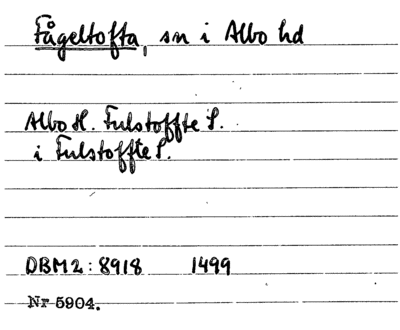 Fågeltofta, sn i Albo hd
Albo H. Fulstoffte S.
i Fulstoffte S.
DBM2: 8918 1499
Nr 5904.